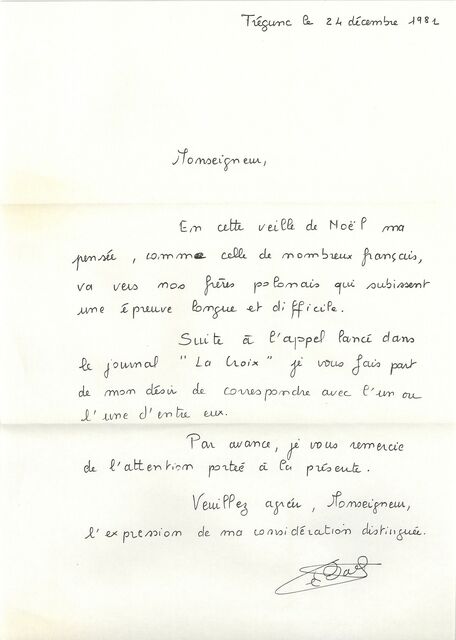 Trégunc le 24 décembre 1981
Monseigneur,
En cette veille de Noël ma
pensée, comme celle de nombreux français,
va vers nos frères polonais qui subissent
une épreuve longue et difficile.
Suite à l'appel lancé dans
le journal "La Croix" je vous fais part
de mon désir de correspondre avec l'un ou
l'une d'entre eux.
Par avance, je vous remercie
de l'attention portée à la présente.
Veuillez agréer, Monseigneur,
l'expression de ma considération distinguée.